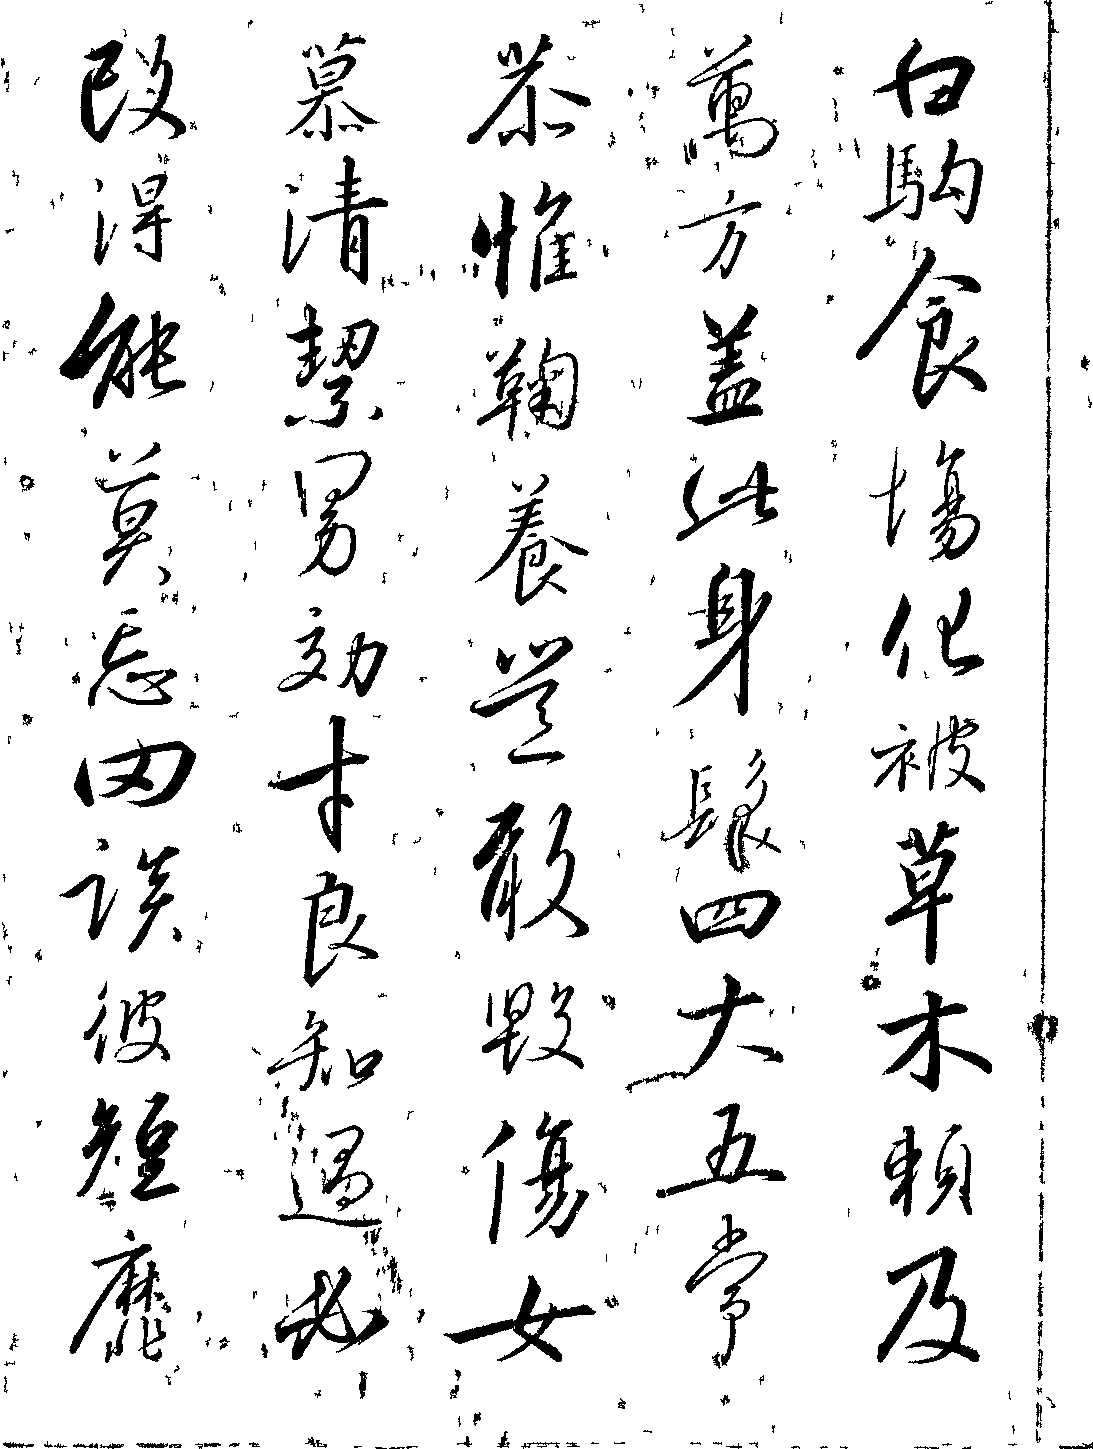 白駒食塲化被草木頼及
萬方盖此身髮四大五常
恭惟鞠養豈敢毀傷女
慕清絜男効才良知過必
改得能莫忘罔談彼短靡